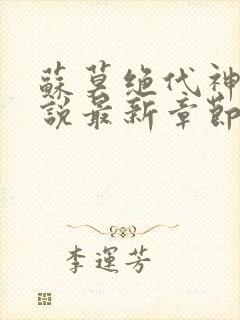 蘇莫絕代神
說最新章節
李運芳